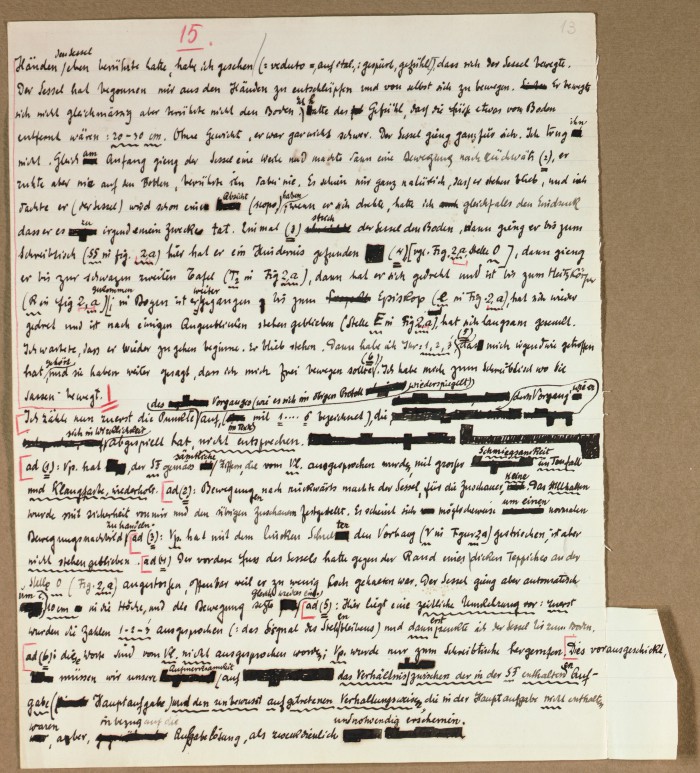 15.
13
den Sessel
Händen / eben berührte hatte, habe ich gesehen (= veduto =, aufetal, : gespürt, gefühlt) dass sich der Sessel bewegte.
Der Sessel hat begonnen mir aus den Händen zu entschlüpfen und von selbst sich zu bewegen. Er bewegte
sich nicht gleichmässig aber berührte nicht den Boden. Ich hatte das Gefühl, dass die Füsse etwas vom Boden
entfernt wären : 20-30 cm. Ohne Gewicht, er war gar nicht schwer. Der Sessel gieng ganz für sich. Ich trug ihn
nicht. Gleich am Anfang gieng der Sessel eine Weile und machte dann eine Bewegung nach rückwärts (2), er
ruhte aber nie auf dem Boden, berührte ihn dabei nie. Es schien mir ganz natürlich, dass er stehen blieb, und ich
dachte er (der Sessel) wird schon eine Absicht (scopo) haben; wenn er sich drehte, hatte ich gleichfalls den Eindruck
dass er es zu irgend einem Zwecke tat. Einmal (3) strich der Sessel den Boden, dann gieng er bis zum
Schreibtisch (SS in fig. 2,a) hier hat er ein Hindernis gefunden (4) [vgl. Fig. 2,a Stelle O], dann gieng
er bis zur schwarzen zweiten Tafel (T2 in Fig 2,a), dann hat er sich gedreht und ist bis zum Heizkörper
gekommen weiter
(R in Fig 2,a); in Bogen ist er gegangen bis zum Episkop (E in Fig. 2,a), hat sich wieder
gedreht und ist nach einigen Augenblicken stehen geblieben (Stelle E in Fig 2,a), hat sich langsam gesenkt.
Ich wartete, dass er wieder zu gehen beginne. Er blieb stehen. Dann habe ich Ihr : 1, 2, 3 (5) das mich irgendwie getroffen
hat, gehört und sie haben weiter gesagt, dass ich mich frei bewegen sollte (6). Ich habe mich zum Schreibtisch wo Sie
sassen - bewegt.
des Vorganges (wie es sich im obigen Protokoll wiederspiegelt) dem Vorgang wie er
Ich zähle nun zuerst die Punkte auf, (im Text mit 1 .... 6 bezeichnet), die
sich in Wirklichkeit abgespielt hat, nicht entsprechen.
sämtliche Schmiegsamkeit
ad (1): Vp. hat, der SF gemäss Ziffern die vom VL. ausgesprochen wurde, mit grosser im Tonfall
und Klangfarbe, wiederholt. ad (2): Bewegung nach rückwärts machte der Sessel, für die Zuschauer, keine. Das Stillhalten
wurde mit Sicherheit von mir und den übrigen Zuschauern festgestellt. Es scheint sich möglicherweise um einen normalen
zu handeln.
Bewegungsnachbild ad (3): Vp. hat mit dem linken Schulter den Vorhang (V in Figur 2a) gestrichen, ist aber
nicht stehen geblieben. ad (4) Der vordere Fuss des Sessels hatte gegen der Rand eines dicken Teppiches an der
Stelle O (Fig. 2,a) angestossen, offenbar weil er zu wenig hoch gehoben war. Der Sessel gieng aber automatisch
um 10 cm in die Höhe, und die Bewegung setzte gleich wieder ein. ad (5): Hier liegt eine zeitliche Umkehrung vor : zuerst
wurden die Zahlen 1-2-3 ausgesprochen (: das Signal des Stehbleibens) und dann erst senkte ich der Sessel bis zum Boden.
ad (6): die Worte sind vom VL. nicht ausgesprochen worden; Vp. wurde nur zum Schreibtische hergerufen. Dies vorausgeschickt,
müssen wir unsere Aufmerksamkeit auf das Verhältnis zwischen der in der SF enthaltenen Auf-
gabe (Hauptaufgabe) und den unbewusst aufgetretenen Verhaltungsweisen, die in der Hauptaufgabe nicht enthalten
waren in bezug auf die und notwendig erscheinen.
, aber, Aufgabelösung, als zweckdienlich